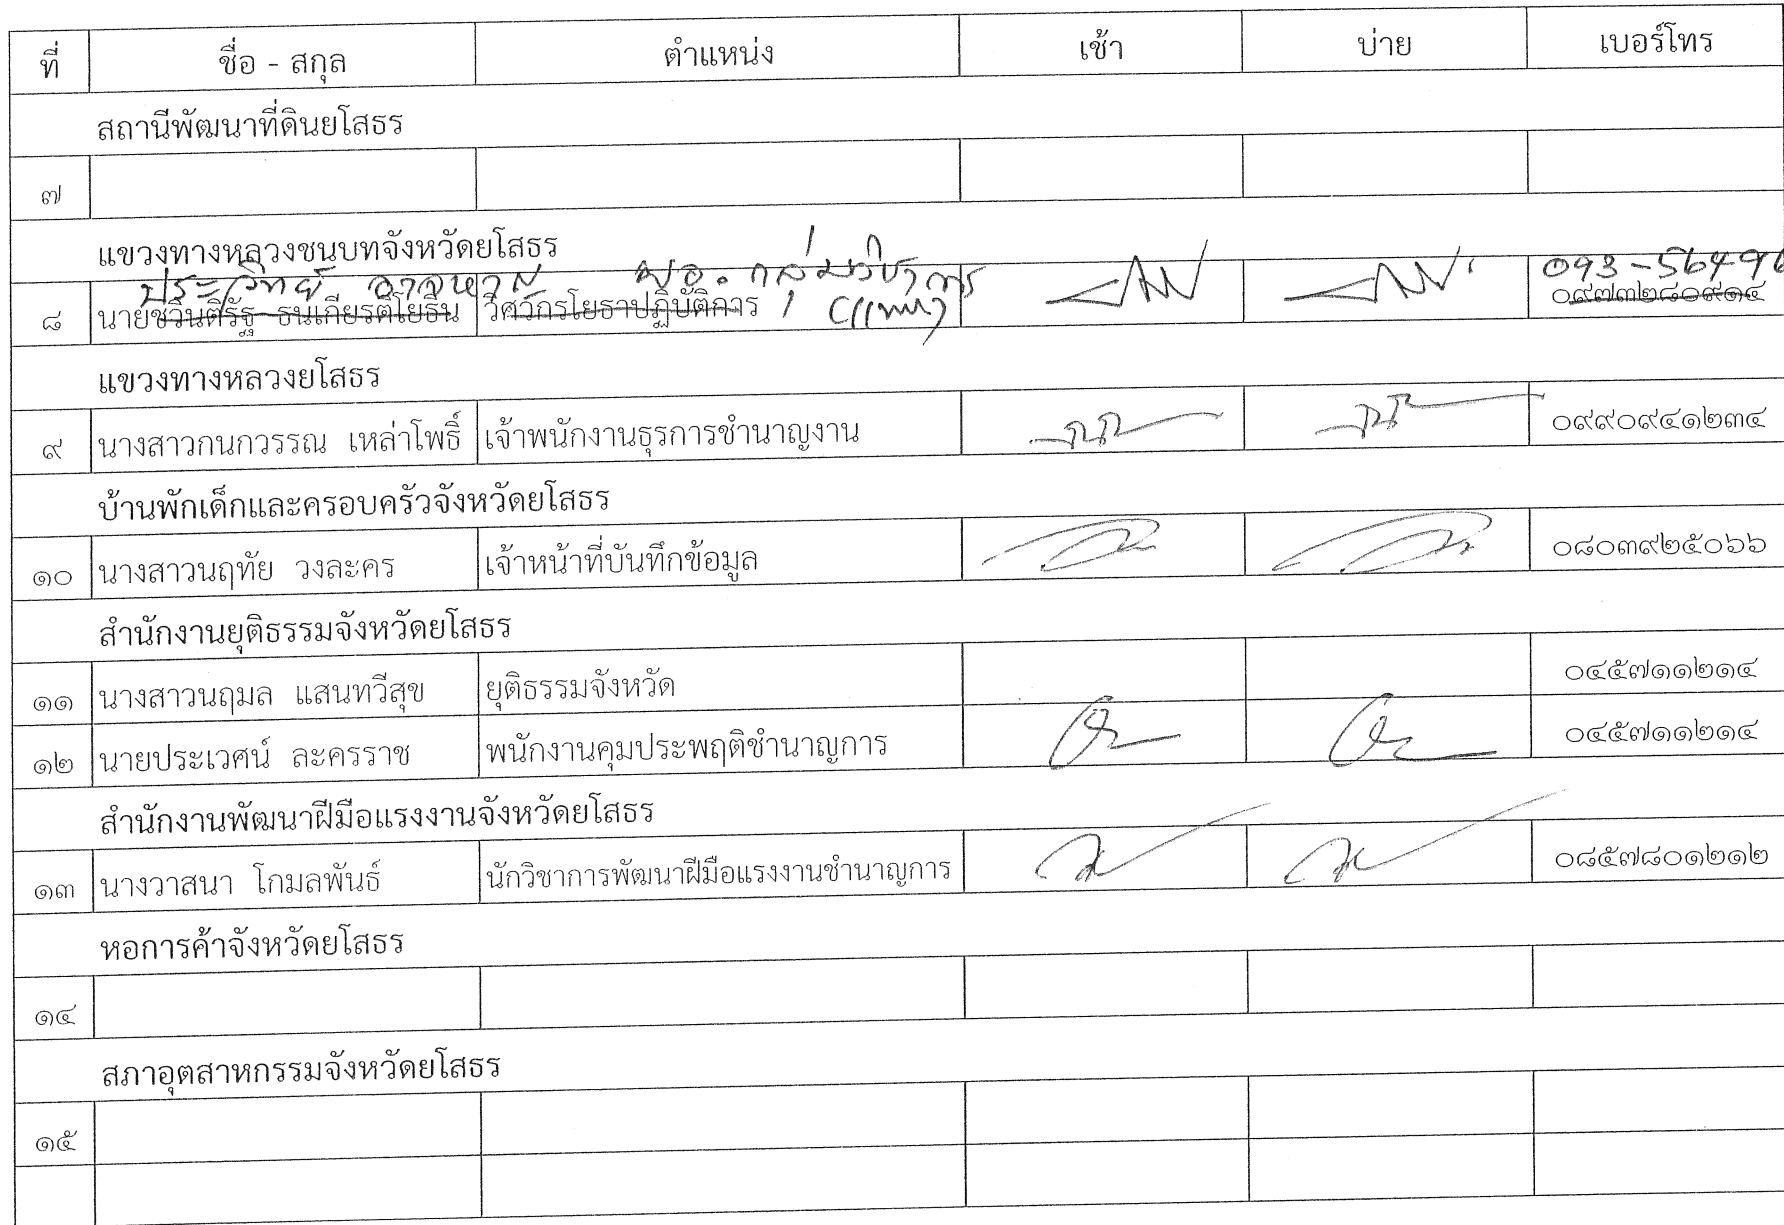 ที่ ชื่อ - สกุล ตำแหน่ง เช้า บ่าย เบอร์โทร
สถานีพัฒนาที่ดินยโสธร
๗
แขวงทางหลวงชนบทจังหวัดยโสธร
ประวิทย์ อาจหาญ ผอ.กลุ่มวิชาการ 093-56496
๘ นายชวินติรัฐ ธนเกียรติโยธิน วิศวกรโยธาปฏิบัติการ (แทน) ๐๙๗๓๒๘๐๙๑๔
แขวงทางหลวงยโสธร
๙ นางสาวกนกวรรณ เหล่าโพธิ์ เจ้าพนักงานธุรการชำนาญงาน ๐๙๙๐๙๔๑๒๓๔
บ้านพักเด็กและครอบครัวจังหวัดยโสธร
๑๐ นางสาวนฤทัย วงละคร เจ้าหน้าที่บันทึกข้อมูล ๐๘๐๓๙๒๕๐๖๖
สำนักงานยุติธรรมจังหวัดยโสธร
๑๑ นางสาวนฤมล แสนทวีสุข ยุติธรรมจังหวัด ๐๔๕๗๑๑๒๑๔
๑๒ นายประเวศน์ ละครราช พนักงานคุมประพฤติชำนาญการ ๐๔๕๗๑๑๒๑๔
สำนักงานพัฒนาฝีมือแรงงานจังหวัดยโสธร
๑๓ นางวาสนา โกมลพันธ์ นักวิชาการพัฒนาฝีมือแรงงานชำนาญการ ๐๘๕๗๘๐๑๒๑๒
หอการค้าจังหวัดยโสธร
๑๔
สภาอุตสาหกรรมจังหวัดยโสธร
๑๕